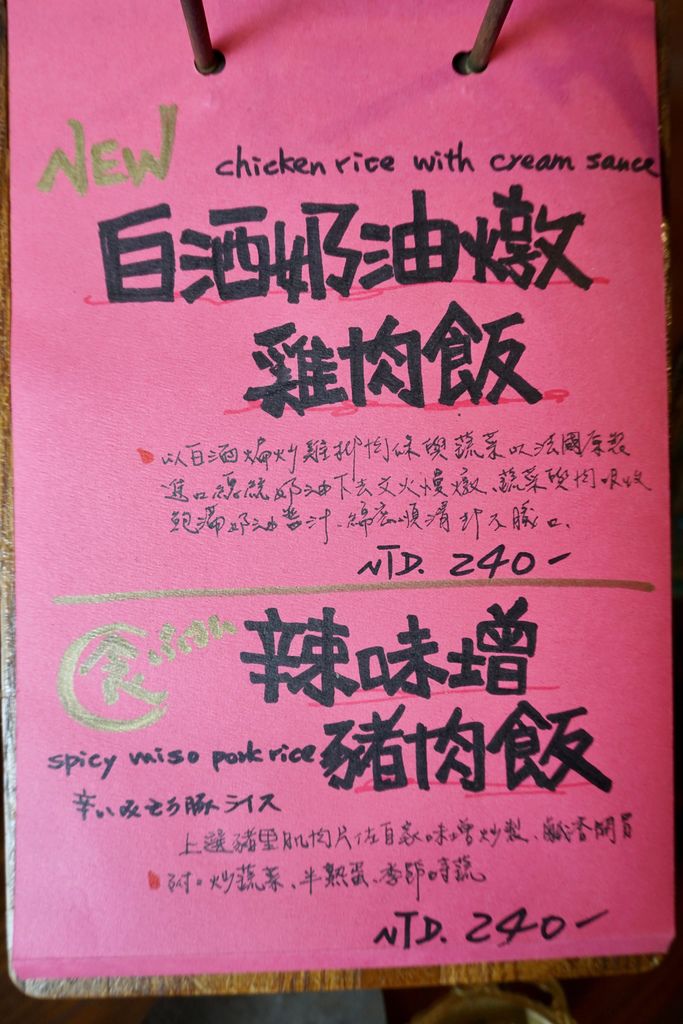 NEW
chicken rice with cream sauce
白酒奶油燉
雞肉飯
以白酒煸炒雞柳肉條與蔬菜以法國原裝
進口總統奶油下去文火慢燉、蔬菜雞肉吸收
飽滿奶油醬汁、綿密順滑卻不膩口、
NTD. 240-
食
辣味增
豬肉飯
spicy miso pork rice
辛いみそう豚ライス
上選豬里肌肉片佐自家味增炒製、鹹香開胃
附:炒蔬菜、半熟蛋、季節時蔬
NTD. 240-